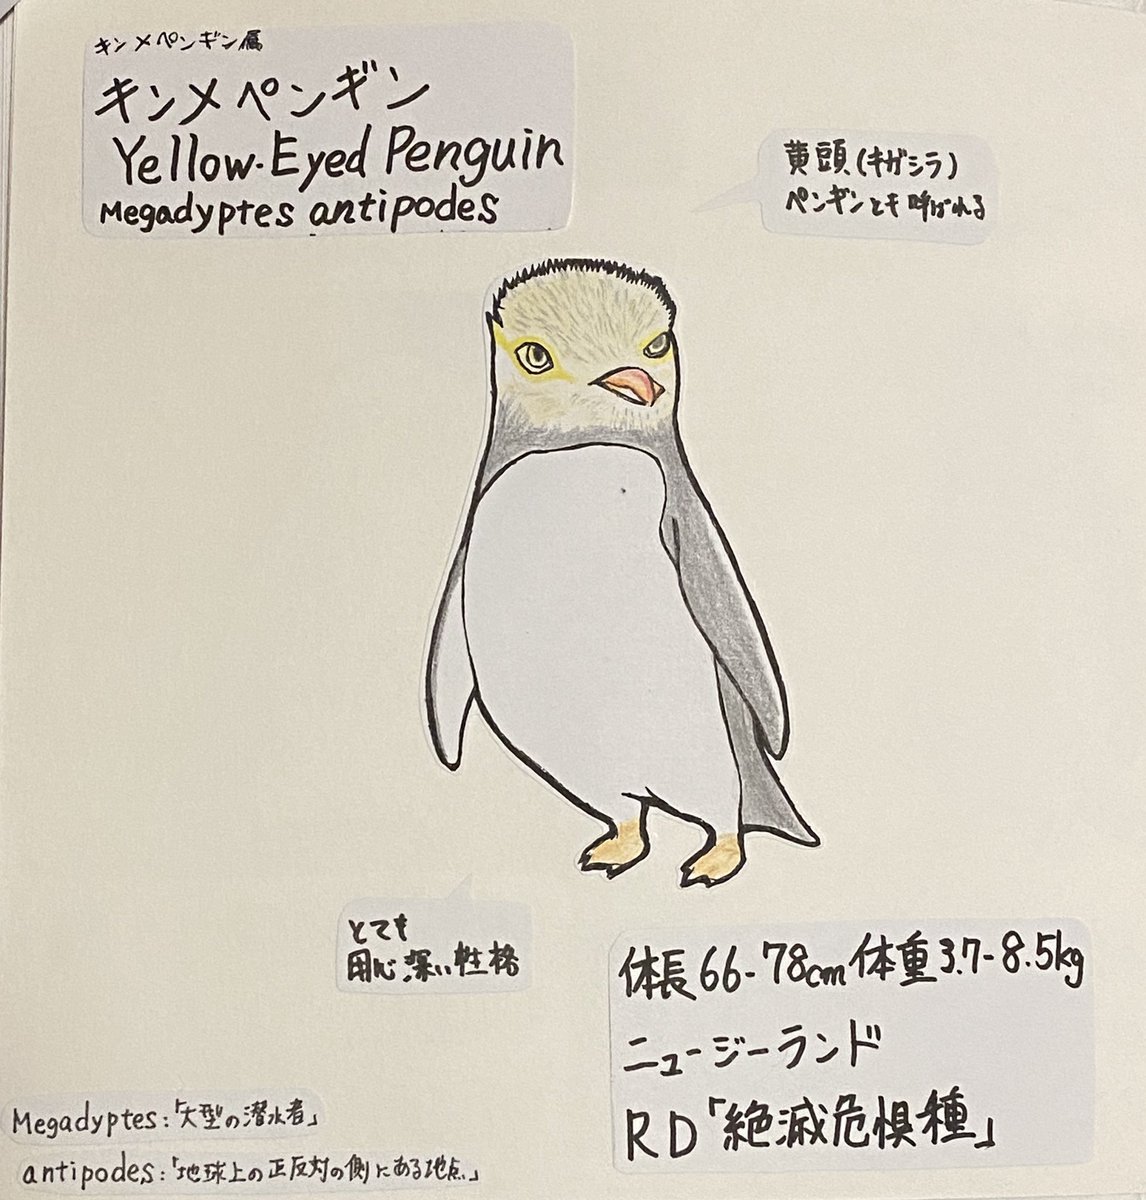 キンメペンギン属
キンメペンギン
Yellow-Eyed Penguin
Megadyptes antipodes
黄頭(キガシラ)
ペンギンとも呼ばれる
とても
用心深い性格
体長66-78cm体重3.7-8.5kg
ニュージーランド
RD「絶滅危惧種」
Megadyptes:「大型の潜水者」
antipodes:「地球上の正反対の側にある地点」